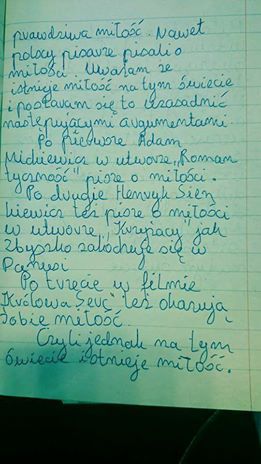 prawdziwa miłość. Nawet
polscy pisarze pisali o
miłości. Uważam że
istnieje miłość na tym świecie
i postaram się to uzasadnić
następującymi argumentami.
Po pierwsze Adam
Mickiewicz w utworze „Roman
tyczność" pisze o miłości.
Po drugie Henryk Sien
kiewicz też pisze o miłości
w utworze „Krzyżacy" jak
Zbyszko zakochuje się w
Danusi
Po trzecie w filmie
„Królowa Serc" też okazują
sobie miłość.
Czyli jednak na tym
świecie istnieje miłość.